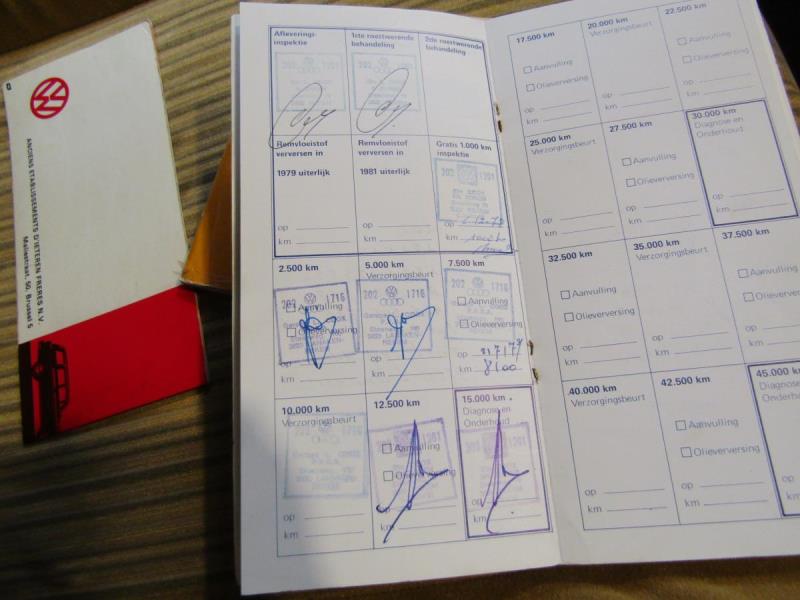 ANCIENS ETABLISSEMENTS D'IETEREN FRERES N.V.
Maliestraat, 50, Brussel 5
Afleverings-
inspektie
202 1201
1ste roestwerende
behandeling
202 1201
2de roestwerende
behandeling
Remvloeistof
verversen in
1979 uiterlijk
op
km
Remvloeistof
verversen in
1981 uiterlijk
op
km
Gratis 1.000 km
inspektie
202 1201
op
km
2.500 km
202 1716
Aanvulling
Olieverversing
op
km
5.000 km
Verzorgingsbeurt
202 1716
op
km
7.500 km
202 1716
Aanvulling
Olieverversing
op
km 8100
10.000 km
Verzorgingsbeurt
op
km
12.500 km
202 1201
Aanvulling
Olieverversing
op
km
15.000 km
Diagnose en
Onderhoud
1201
op
km
17.500 km
Aanvulling
Olieverversing
op
km
20.000 km
Verzorgingsbeurt
op
km
22.500 km
Aanvulling
Olieverversing
op
km
25.000 km
Verzorgingsbeurt
op
km
27.500 km
Aanvulling
Olieverversing
op
km
30.000 km
Diagnose en
Onderhoud
op
km
32.500 km
Aanvulling
Olieverversing
op
km
35.000 km
Verzorgingsbeurt
op
km
37.500 km
Aanvulling
Olieverversing
op
km
40.000 km
Verzorgingsbeurt
op
km
42.500 km
Aanvulling
Olieverversing
op
km
45.000 km
Diagnose en
Onderhoud
op
km